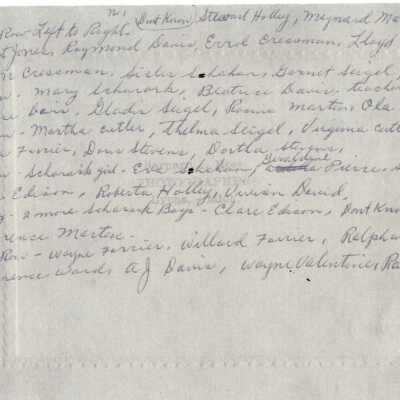 No. 1 Dont Know, Steward Holley, Maynard Ma
Row Left to Right.
t Jones, Raymond Davis, Errol Cressman, Lloyd
n Cressman, Sister Schehan, Garnet Seigel,
Mary Schorock, Beatrice Davis, teacher
Carr, Gladis Seigel, Roena Martin, Ola
- Martha Cutler, Thelma Seigel, Virginia Cutl
Furrier, Dora Stevens, Dortha Stevens,
- Schorock girl - Eva Schehan, Geraldyne Pierce,
Edison, Roberta Holley, Vivian David,
- 2 more Schorock Boys - Clare Edison, Dont Kno
rence Martin -
Row - Wayne Furrier, Willard Furrier, Ralph
rence Ward, A J Davis, Wayne Valentine, Ra